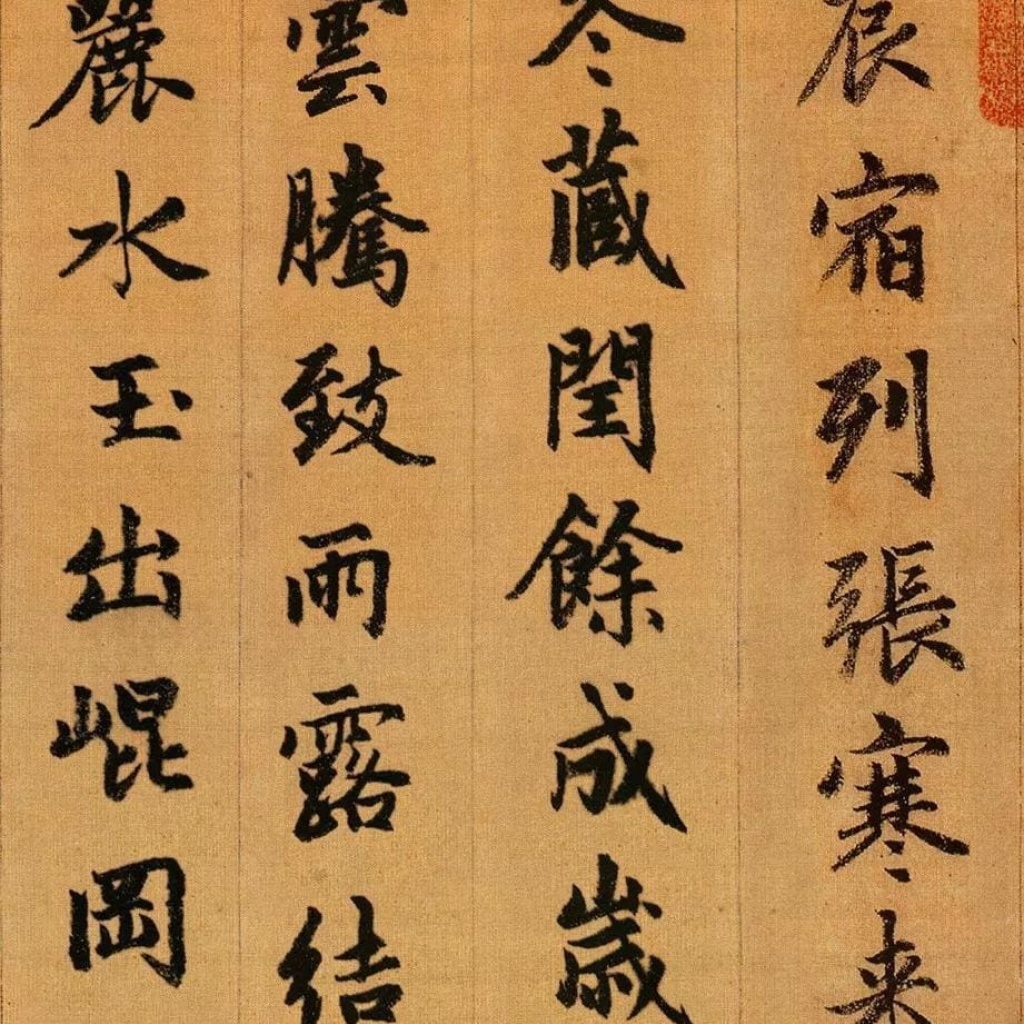 辰宿列張寒来
冬藏閏餘成歲
雲騰致雨露結
麗水玉出崐岡